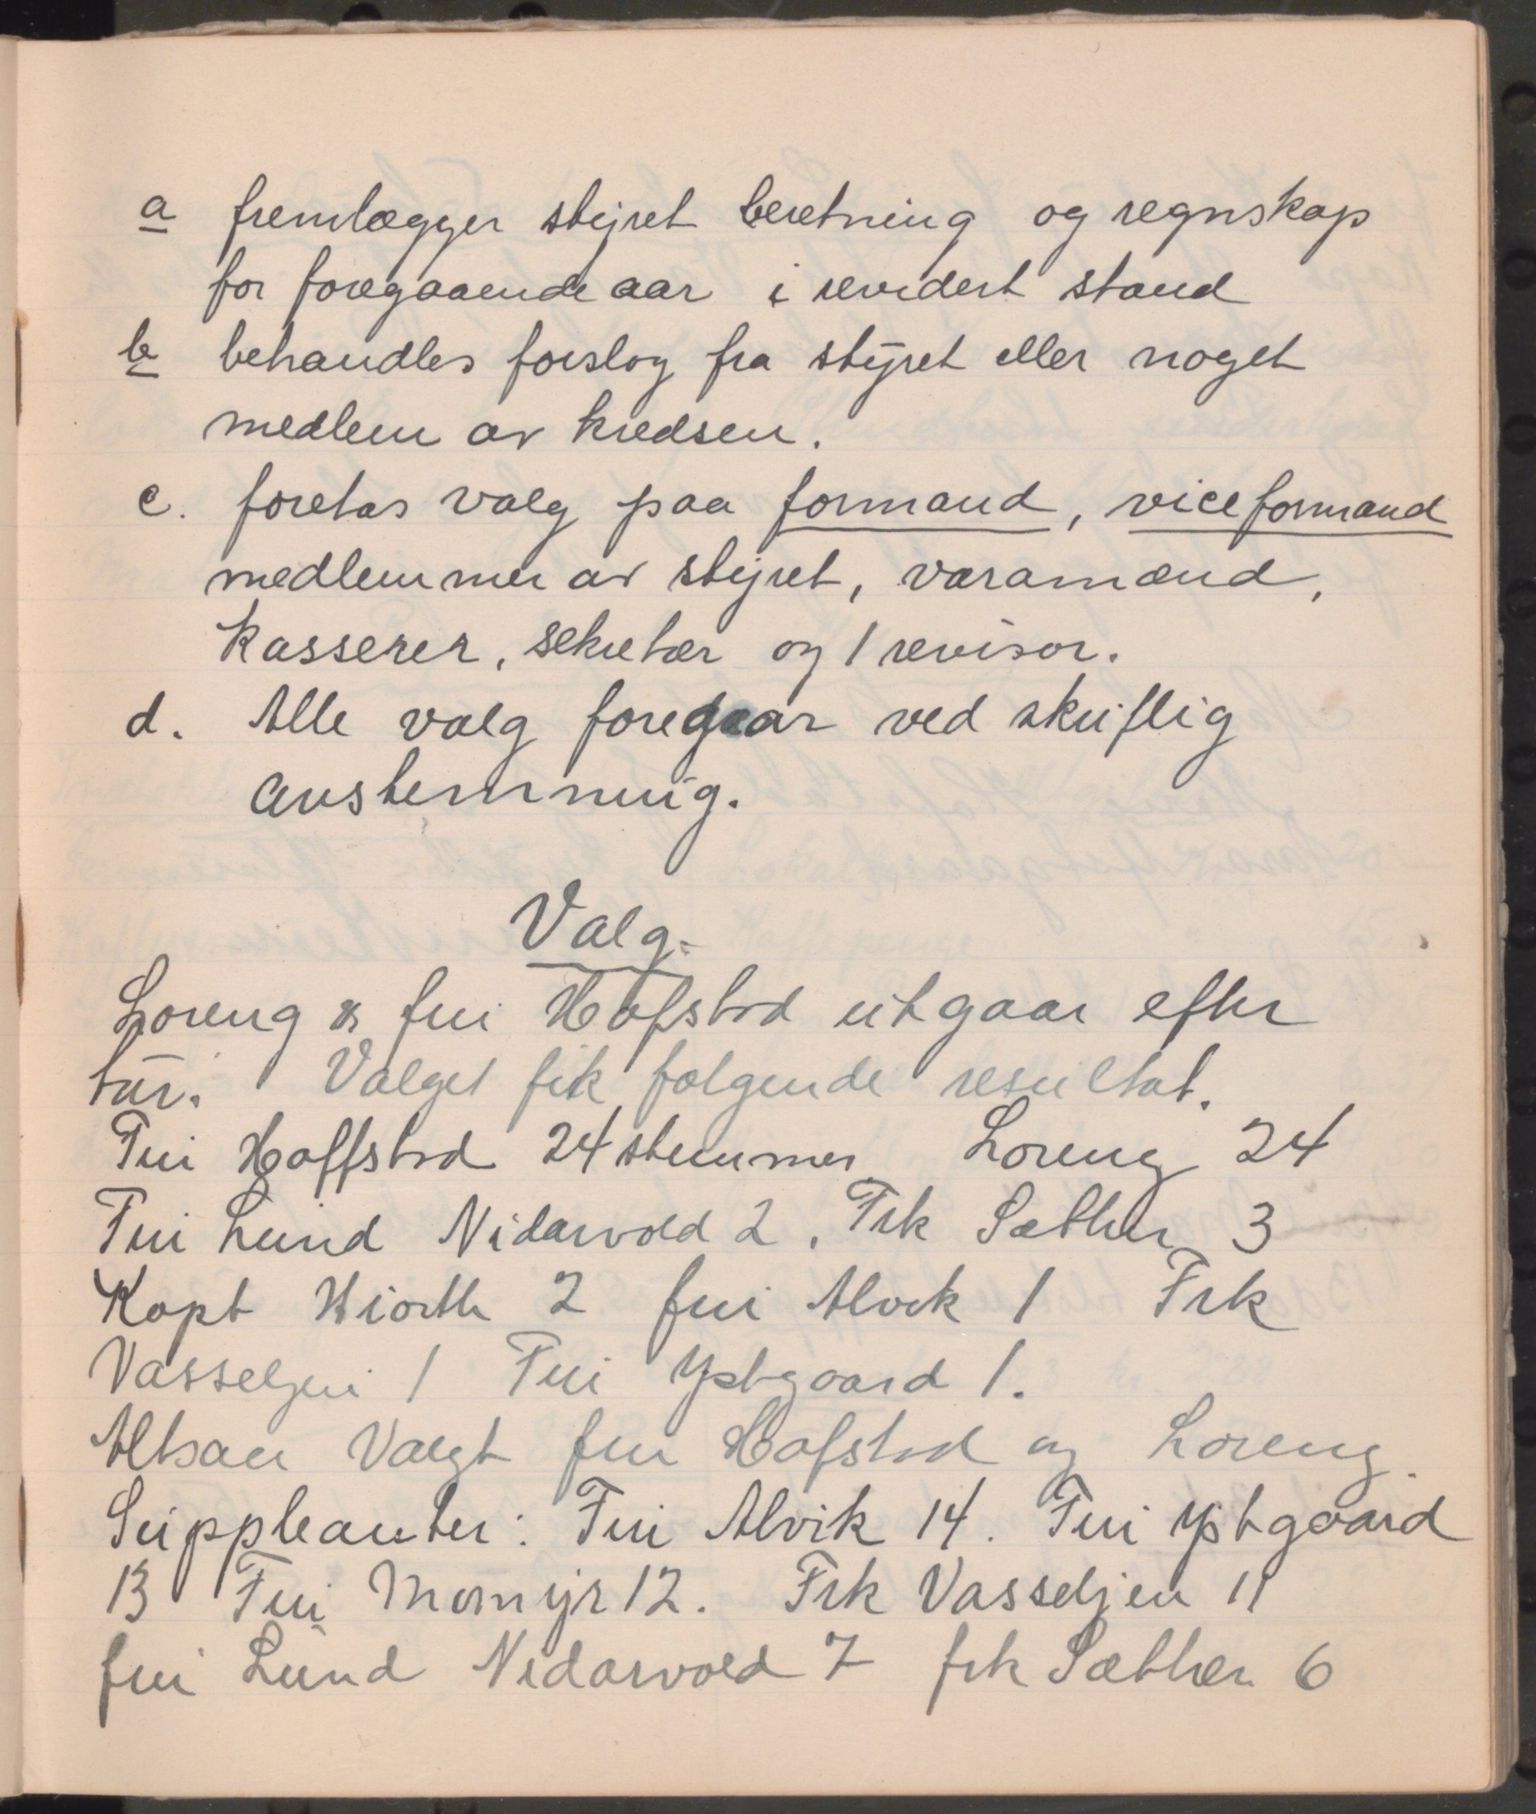 a fremlægger styret beretning og regnskap
for foregaaende aar i revidert stand
b behandles forslag fra styret eller noget
medlem av kredsen.
c. foretas valg paa formand, viceformand
medlemmer av styret, varamænd,
kasserer, sekretær og 1 revisor.
d. Alle valg foregaar ved skriftlig
avstemning.
Valg.
Loreng & fru Hofstad utgaar efter
tur. Valget fik følgende resultat.
Fru Hoffstad 24 stemmer Loreng 24
Fru Lund Nidarvold 2. Frk Sæther 3
Kapt Hiorth 2 fru Alvik 1 Frk
Vasseljen 1 Fru Ystgaard 1.
Altsaa Valgt fru Hofstad og Loreng.
Suppleanter: Fru Alvik 14. Fru Ystgaard
13 Fru Momyr 12. Frk Vasseljen 11
fru Lund Nidarvold 7 frk Sæther 6